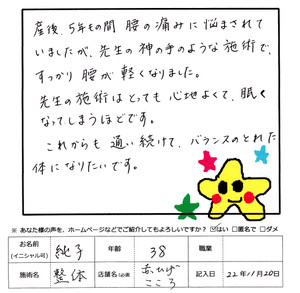 産後、5年もの間 腰の痛みに悩まされて
いましたが、先生の神の手のような施術で、
すっかり腰が軽くなりました。
先生の施術はとっても心地よくて、眠く
なってしまうほどです。
これからも通い続けて、バランスのとれた
体になりたいです。
※ あなた様の声を、ホームページなどでご紹介してもよろしいですか？ ☑はい □匿名で □ダメ
お名前 (イニシャル可) 純子 年齢 38 職業
施術名 整体 店舗名(必須) あひげ こころ 記入日 22年11月20日